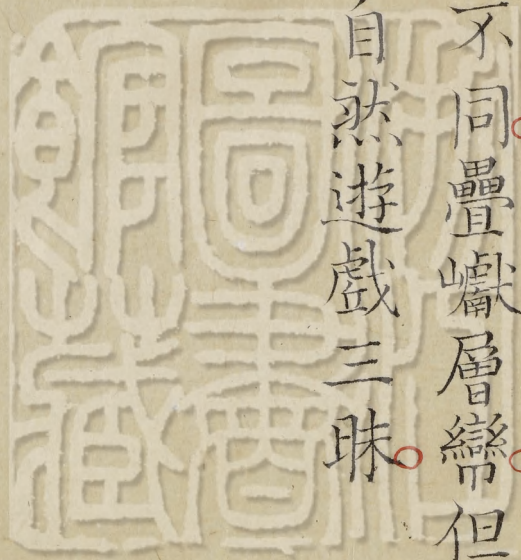 不同疊巘層巒但
自然遊戲三昧